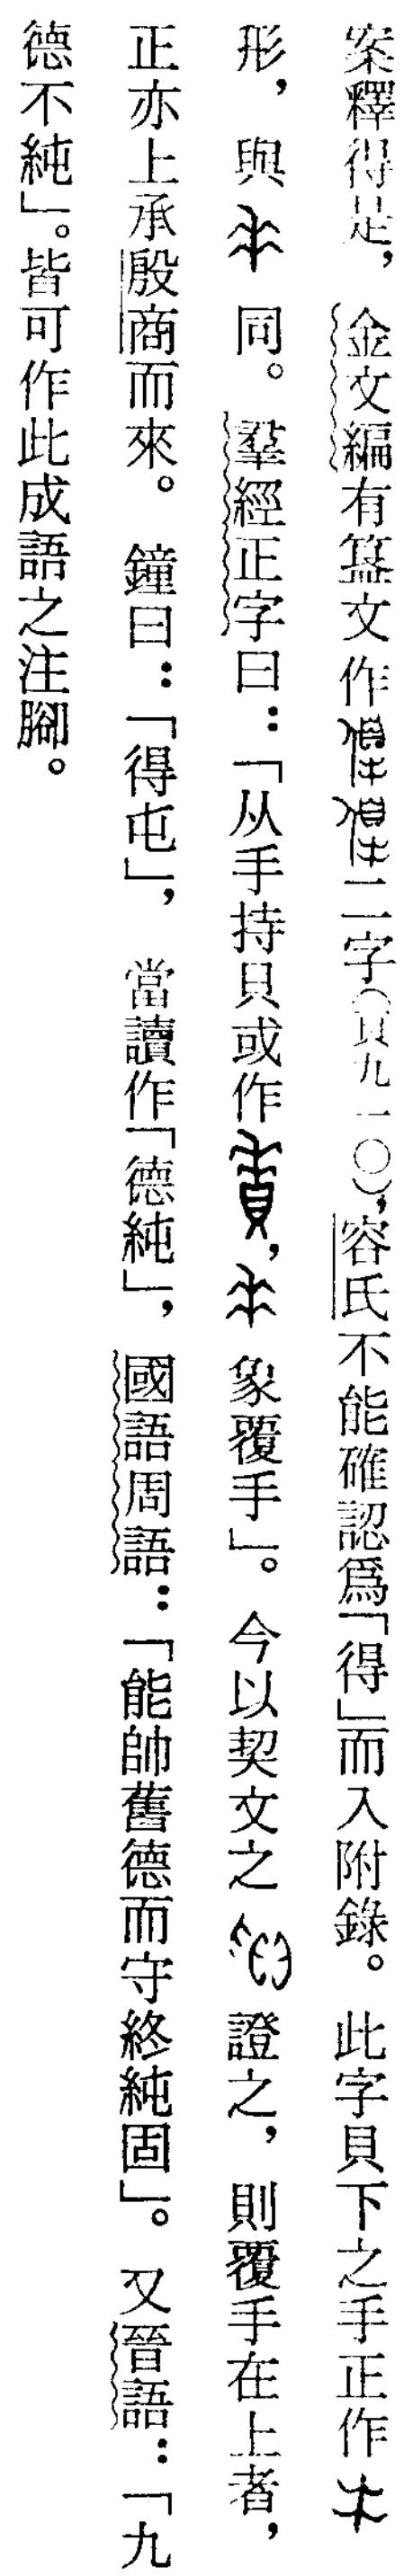 案釋得是，金文編有簋文作二字（頁九一〇），容氏不能確認爲「得」而入附錄。此字貝下之手正作
形，與同。羣經正字曰：「从手持貝或作，象覆手」。今以契文之證之，則覆手在上者，
正亦上承殷商而來。鐘曰：「得屯」，當讀作「德純」，國語周語：「能帥舊德而守終純固」。又晉語：「九
德不純」。皆可作此成語之注腳。